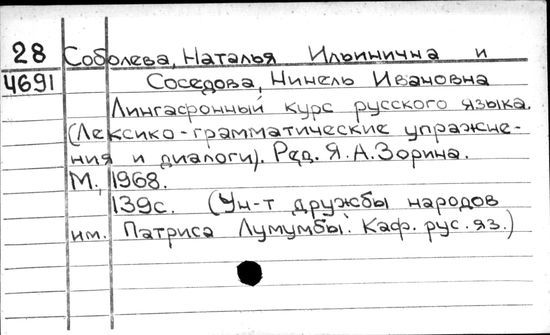 28 Соболева, Наталья Ильинична и
4691 Соседова, Нинель Ивановна
Лингафонный курс русского языка.
(Лексико-грамматические упражне-
ния и диалоги). Ред. Я.А.Зорина.
М., 1968.
139с. (Ун-т дружбы народов
им. Патриса Лумумбы. Каф. рус. яз.)